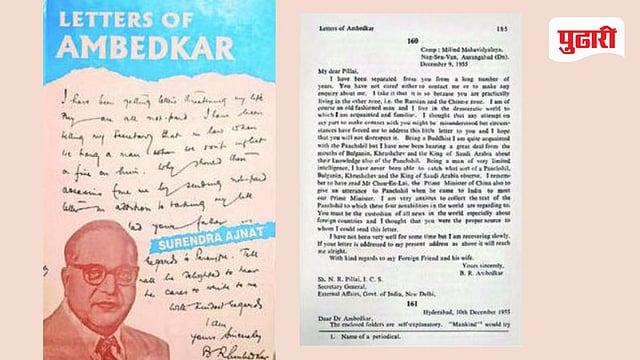 LETTERS OF
AMBEDKAR
I have been getting letters threatening my life
They are all not-paid. I have been
telling my Secretary that in law when
we hang a man, when we don't inflict
a fine on him. Why should these
assassins fine me by sending not-paid
letters in addition to taking my life
SURENDRA AJNAT
regards to Tell
will be delighted to hear
he cares to write to me
with kindest regards
I am
Yours Sincerely
B R Ambedkar
पुढारी
Letters of Ambedkar 185
160
Camp : Milind Mahavidyalaya,
Nag-Sen-Van, Aurangabad (Dn).
December 9, 1955
My dear Pillai,
I have been separated from you from a long number of
years. You have not cared either to contact me or to make any
enquiry about me. I take it that it is so because you are practically
living in the other zone, i.e. the Russian and the Chinese zone. I am of
course an old fashioned man and I live in the democratic world to
which I am acquainted and familiar. I thought that any attempt on
my part to make contact with you might be misunderstood but circum-
stances have forced me to address this little letter to you and I hope
that you will not disrespect it. Being a Buddhist I am quite acquainted
with the Panchsil but I have now been hearing a great deal from the
mouths of Bulganin, Khrushchev and the King of Saudi Arabia about
their knowledge also of the Panchshil. Being a man of very limited
intelligence, I have never been able to catch what sort of a Panchsil,
Bulganin, Khrushchev and the King of Saudi Arabia observe. I remem-
ber to have read Mr Chou-En-Lai, the Prime Minister of China also to
give an utterance to Panchshil when he came to India to meet
our Prime Minister. I am very anxious to collect the text of the
Panchshil to which these four notabilities in the world are regarding to.
You must be the custodian of all news in the world, especially about
foreign countries and I thought that you were the proper source to
whom I could send this letter.
I have not been very well for some time but I am recovering slowly.
If your letter is addressed to my present address as above it will reach
me alright.
With kind regards to my Foreign Friend and his wife.
Yours sincerely,
B. R. Ambedkar
Sh. N. R. Pillai, I. C. S.
Secretary General,
External Affairs, Govt. of India, New Delhi,
161
Hyderabad, 10th December 1955
Dear Dr Ambedkar,
The enclosed folders are self-explanatory. "Mankind"¹ would try
1. Name of a periodical.